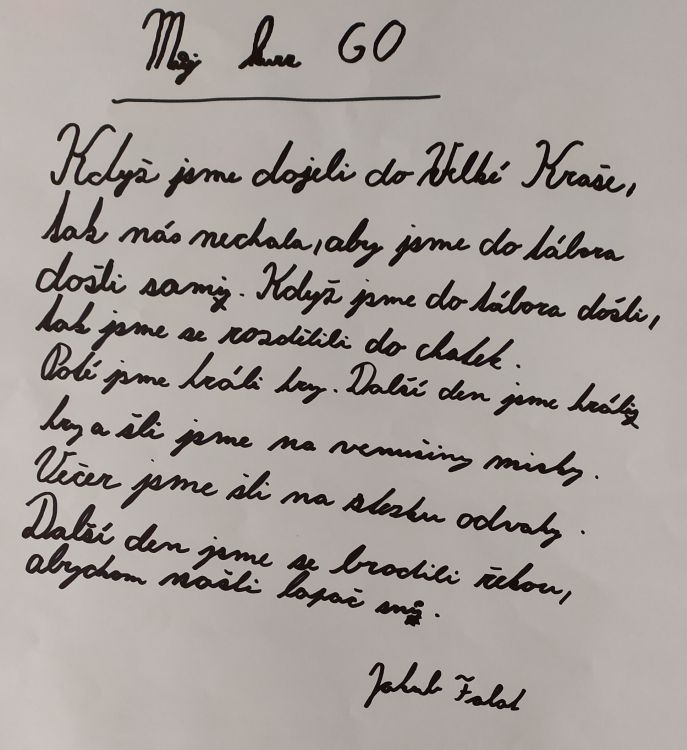 Můj kurz GO
Když jsme dojeli do Velké Kraše,
tak nás nechala, aby jsme do tábora
došli samy. Když jsme do tábora došli,
tak jsme se rozdělili do chatek.
Poté jsme hráli hry. Další den jsme hráli
hry a šli jsme na venušiny misky.
Večer jsme šli na stezku odvahy.
Další den jsme se brodili řekou,
abychom našli lapač snů.
Jakub